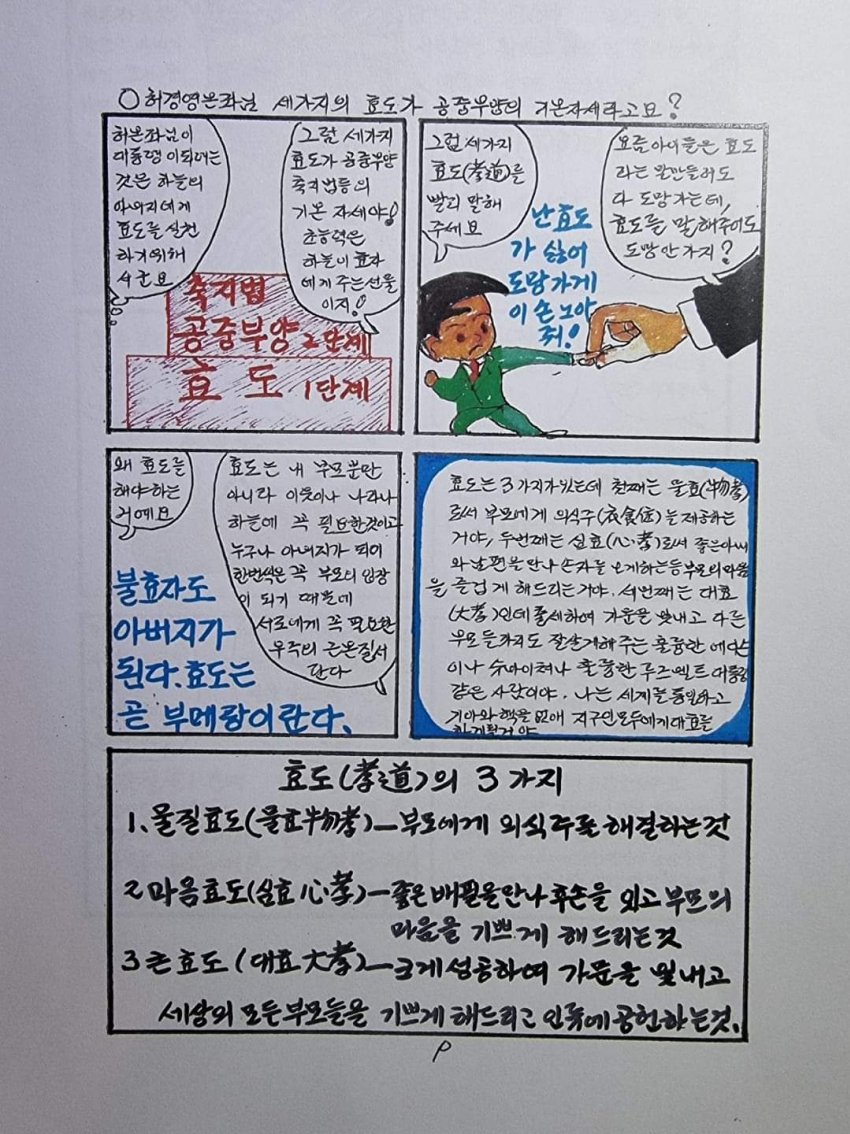 ○허경영은좌님 세가지의 효도가 공중부양의 기본자세라고요?
허본좌님이
대통령이되려는
것은 하늘의
아버지에게
효도를 실천
하기위해
서군요
그럼 세가지
효도가 공중부양
축지법등의
기본 자세야!
초능력은
하늘이 효자
에게 주는선물
이지!
축지법
공중부양 2단계
효도 1단계
그럼 세가지
효도(孝道)를
빨리 말해
주세요
요즘아이들은 효도
라는 말만들어도
다 도망가는데,
효도를 말해주어도
도망안가지?
난효도
가 싫어
도망가게
이 손 노아
줘!
왜 효도를
해야하는
거예요
효도는 내 부모뿐만
아니라 이웃이나 나라나
하늘에 꼭 필요한것이고
누구나 아버지가 되어
한번씩은 꼭 부모의 입장
이 되기 때문에
서로에게 꼭 필요한
우주의 근본질서
란다
불효자도
아버지가
된다.효도는
곧 부메랑이란다.
효도는 3가지가있는데 첫째는 물효(物孝)
로서 부모에게 의식주(衣食住)를제공하는
거야, 두번째는 심효(心孝)로서 좋은아내
와남편을만나 손자를 보게하는등부모의마음
을 즐겁게 해드리는거야. 세번째는 대효
(大孝)인데출세하여 가문을 빛내고 다른
부모들까지도 잘살게해주는 훌륭한 에디슨
이나 슈바이쳐나 훌륭한 루즈벨트 대통령
같은 사람이야. 나는 세계를통일하고
기아와 핵을 없애 지구인모두에게대효를
하게될거야
효도(孝道)의 3가지
1.물질효도(물효物孝)—부모에게 의식주를 해결하는것
2마음효도(심효心孝)—좋은배필을만나후손을 잇고부모의
마음을 기쁘게 해드리는것
3큰효도(대효大孝)—크게성공하여 가문을 빛내고
세상의 모든부모들을 기쁘게해드리고 인류에공헌하는것.